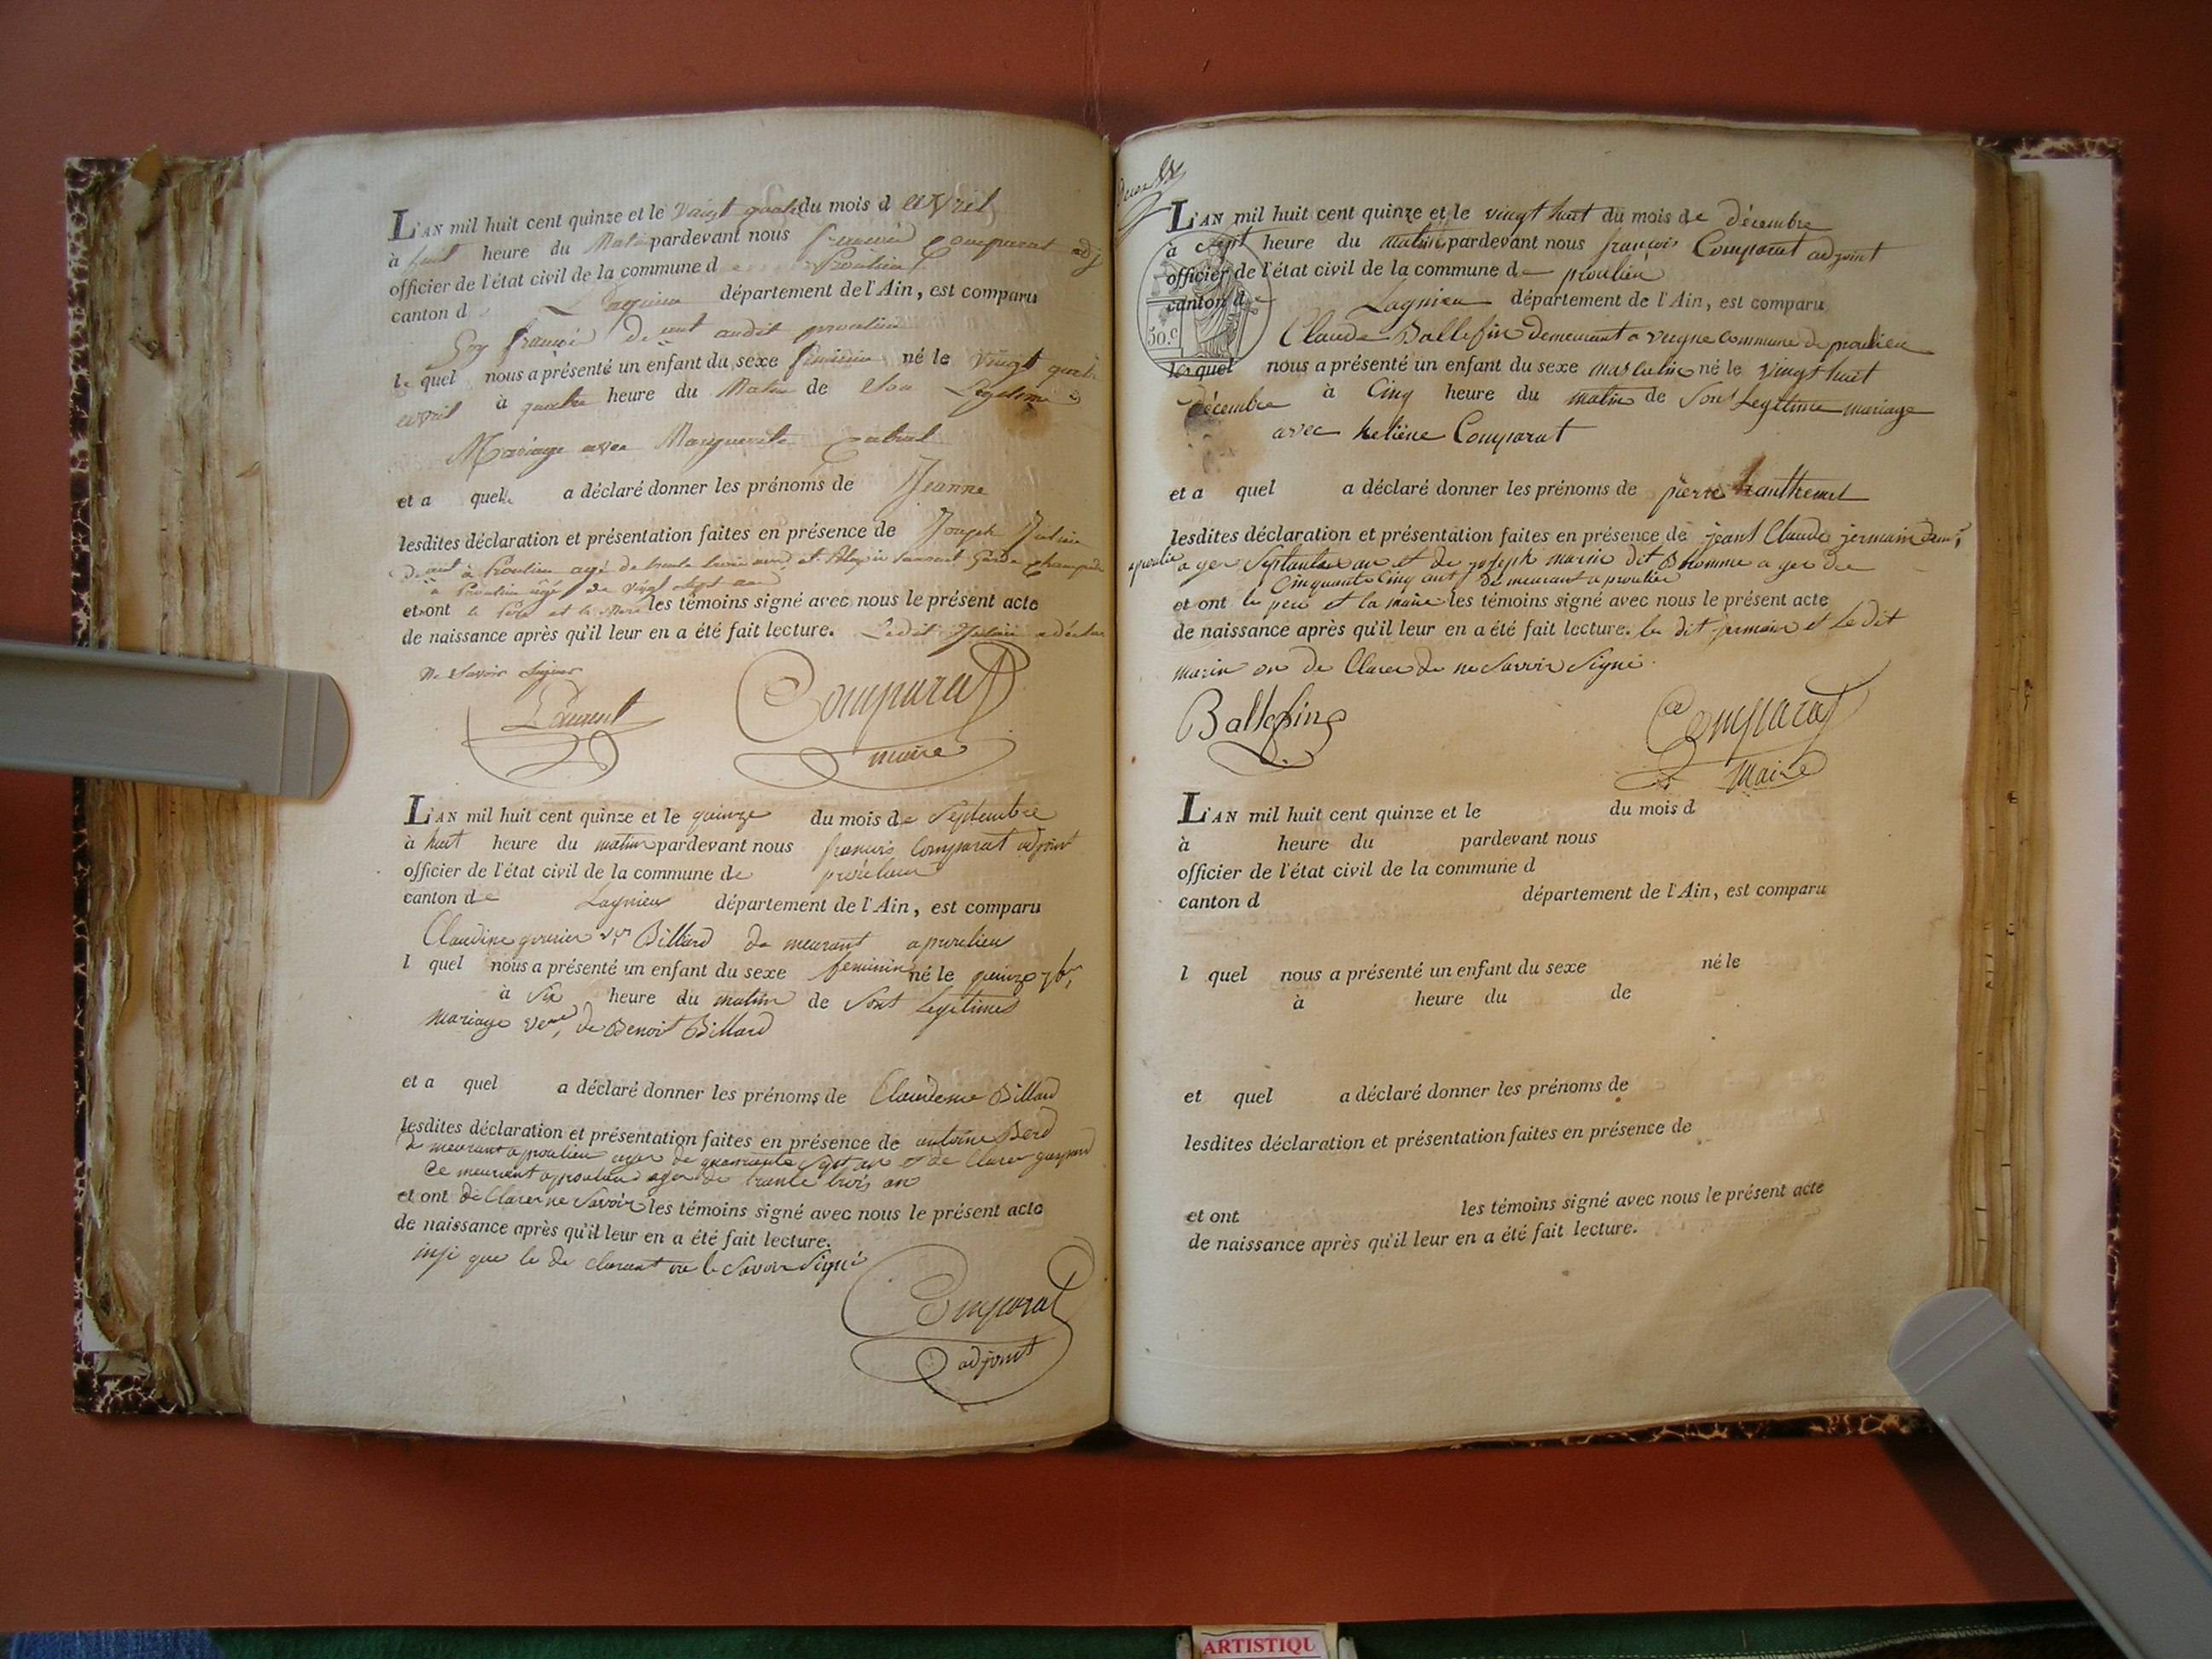 L'AN mil huit cent quinze et le vaingt quatre du mois d avril
à huit heure du Matin pardevant nous francois Comparat adj
officier de l'état civil de la commune de Proulieu
canton d Lagnieu département de l'Ain, est comparu
Goy francois audit proulieu
le quel nous a présenté un enfant du sexe feminin né le vingt quatre
avril à quatre heure du Matin de son Legitime
Mariage avec Marguerite
et a quelle a déclaré donner les prénoms de Jeanne
lesdites déclaration et présentation faites en présence de Joseph Julien
à Proulieu agé de trente trois ans et Laurent Garde Champetre
à Proulieu agé de vingt sept ans
et ont le Pere et la Mere les témoins signé avec nous le présent acte
de naissance après qu'il leur en a été fait lecture. Ledit Julien a déclaré
Ne Savoir Signer
Laurent Comparat
maire
L'AN mil huit cent quinze et le quinze du mois de Septembre
à huit heure du matin pardevant nous francois Comparat adjoint
officier de l'état civil de la commune de proulieu
canton de Lagnieu département de l'Ain, est comparu
Claudine Billard de meurant a proulieu
l quel nous a présenté un enfant du sexe feminin né le quinze 7br
à six heure du matin de Sont Legitimes
mariage de Benoit Billard
et a quel a déclaré donner les prénoms de Billard
lesdites déclaration et présentation faites en présence de antoine
de meurant a proulieu ager de quarante Sept an et de Clarer gaspard
de meurant a proulieu ager de trante trois an
et ont de Clarer ne Savoir les témoins signé avec nous le présent acte
de naissance après qu'il leur en a été fait lecture.
que le de clarant ne Savoir Signé
Comparat
adjoint
L'AN mil huit cent quinze et le vingt huit du mois de décembre
à cept heure du matin pardevant nous françois Comparat adjoint
officier de l'état civil de la commune de proulieu
canton de Lagnieu département de l'Ain, est comparu
50.c
Claude Ballefin demeurant a commune de proulieu
le quel nous a présenté un enfant du sexe masculin né le vingt huit
décembre à Cinq heure du matin de Sont Legitime mariage
avec heliene Comparat
et a quel a déclaré donner les prénoms de pierre
lesdites déclaration et présentation faites en présence de jean Claude jermain
a proulie ager Septante an et de joseph marin dit Bhomme ager de
Cinquante Cinq ant de meurant a proulieu
et ont le peré et la maire les témoins signé avec nous le présent acte
de naissance après qu'il leur en a été fait lecture. le dit jermain et Le dit
marin on de Clarer de ne Savoir Signé.
Ballefin Comparat
Maire
L'AN mil huit cent quinze et le du mois d
à heure du pardevant nous
officier de l'état civil de la commune d
canton d département de l'Ain, est comparu
l quel nous a présenté un enfant du sexe né le
à heure du de
et quel a déclaré donner les prénoms de
lesdites déclaration et présentation faites en présence de
et ont les témoins signé avec nous le présent acte
de naissance après qu'il leur en a été fait lecture.
ARTISTIQU